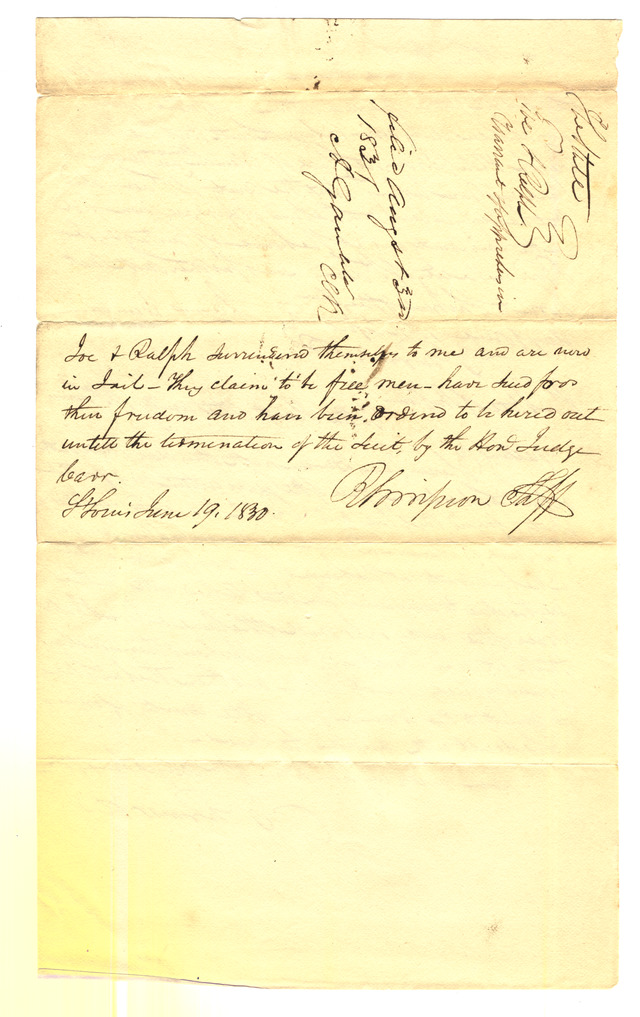 The State
vs
Joe & Ralph
Warrant of apprehension
filed Augst 3rd
1830
A Gamble
Clk
Joe & Ralph surrendered themselves to me and are now
in Jail – They claim to be free men – have sued for
their freedom and have been ordered to be hired out
untill the termination of the Suit, by the Hon. Judge
Carr.
St Louis June 19, 1830.
R Simpson Shff